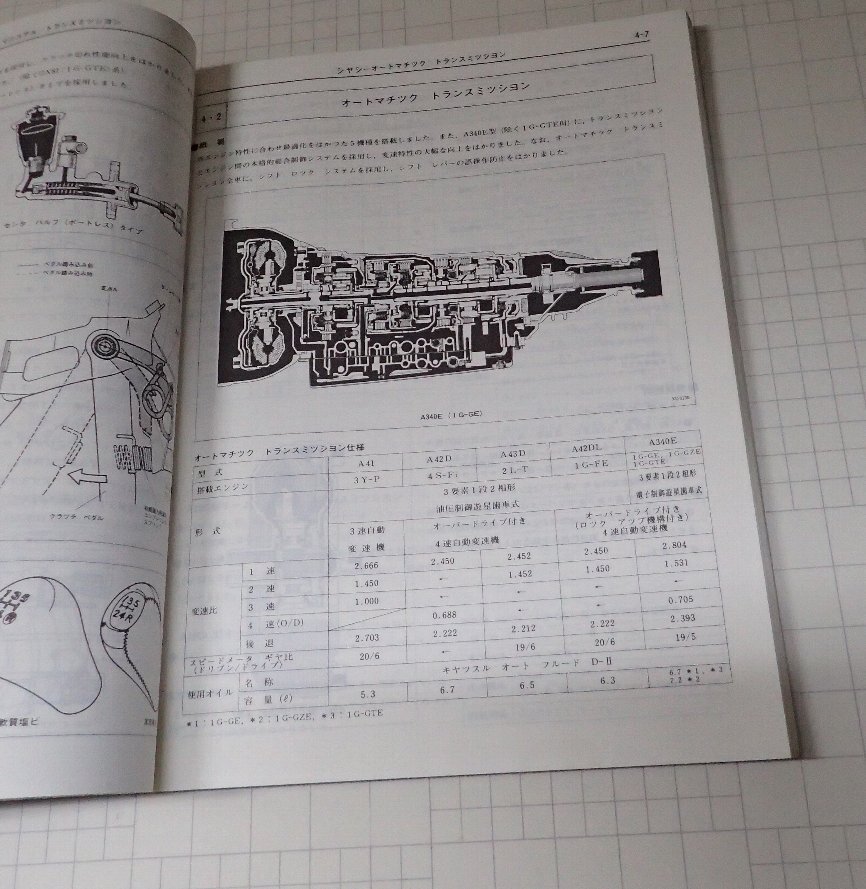 マニュアル トランスミツシヨン
センタ バルブ(ポートレス)タイプ
ペダル踏み込み前
ペダル踏み込み時
クラツチ ペダル
軟質塩ビ
4-7
シヤシーオートマチツク トランスミツシヨン
4-2
オートマチツク トランスミツシヨン
■概 要
各エンジン特性に合わせ最適化をはかつた5機種を搭載しました。また、A340E型(除く1G-GTE用)に、トランスミツシヨン
とエンジン間の本格的総合制御システムを採用し、変速特性の大幅な向上をはかりました。なお、オートマチツク トランスミ
ツシヨン全車に、シフト ロツク システムを採用し、シフト レバーの誤操作防止をはかりました。
A340E(1G-GE)
オートマチツク トランスミツシヨン仕様
型 式 A41 A42D A43D A42DL A340E
搭載エンジン 3Y-P 4S-Fi 2L-T 1G-FE 1G-GE, 1G-GZE
1G-GTE
形 式 3要素1段2相形 3要素1段2相形
油圧制御遊星歯車式 電子制御遊星歯車式
3速自動 オーバードライブ付き オーバードライブ付き
(ロツク アツプ機構付き)
変速機 4速自動変速機 4速自動変速機
変速比 1 速 2.666 2.450 2.452 2.450 2.804
2 速 1.450 ← 1.452 1.450 1.531
3 速 1.000 ← ← ← ←
4 速(O/D) 0.688 ← ← 0.705
後 退 2.703 2.222 2.212 2.222 2.393
スピードメータ ギヤ比
(ドリブン/ドライブ) 20/6 ← 19/6 20/6 19/5
使用オイル 名 称 キヤツスル オート フルード D-II
容 量(ℓ) 5.3 6.7 6.5 6.3 6.7*1, *3
7.2*2
*1:1G-GE, *2:1G-GZE, *3:1G-GTE